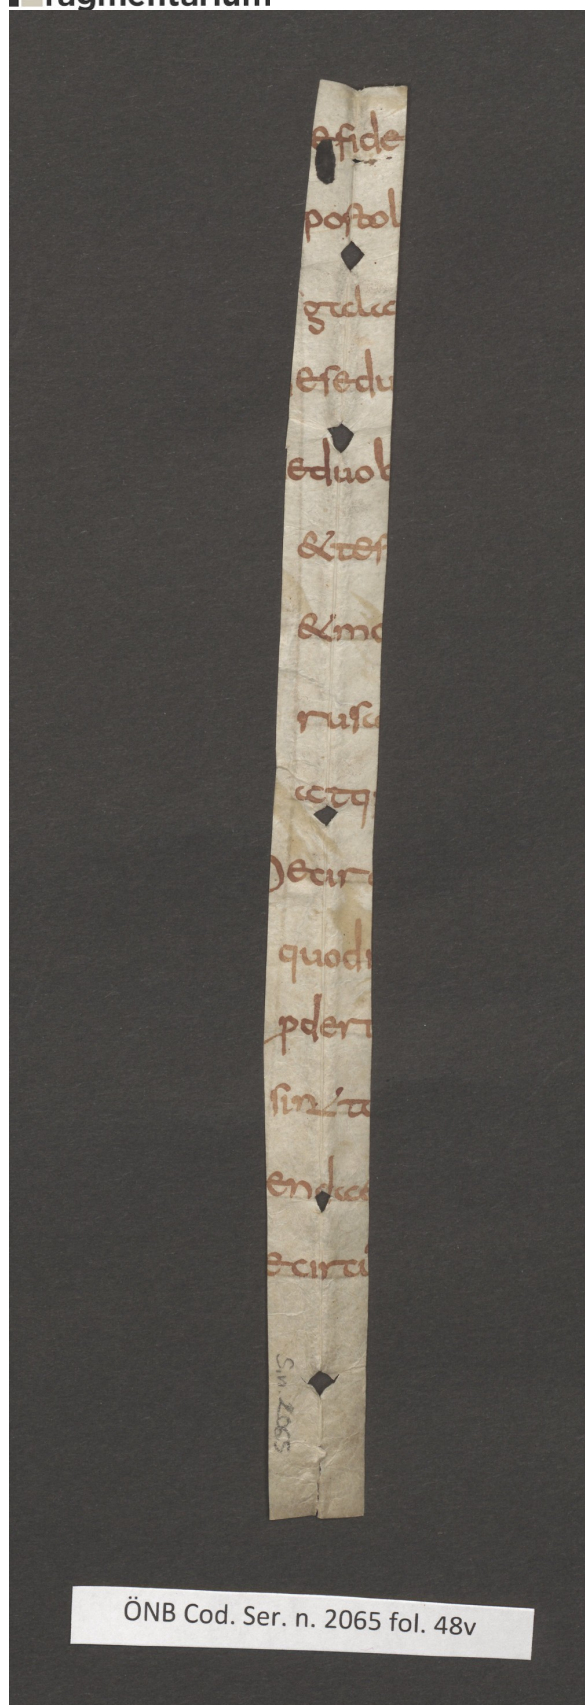 ragmentarium
efide
postol
gala
esedu
eduob
&tes
&mo
rusa
atq
ecirc
quodi
pderi
sin
enda
ecircu
S.n. 2065
ÖNB Cod. Ser. n. 2065 fol. 48v